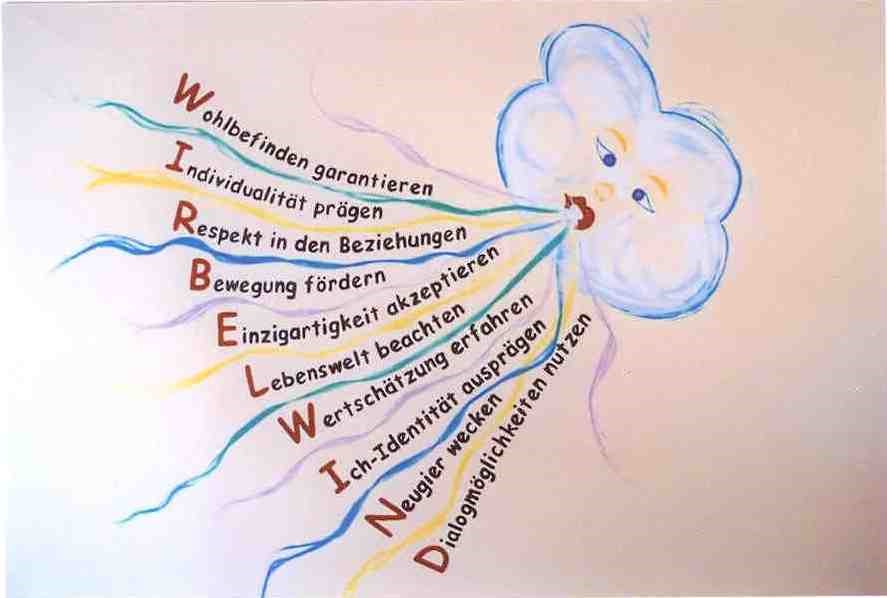 Wohlbefinden garantieren
Individualität prägen
Respekt in den Beziehungen
Bewegung fördern
Einzigartigkeit akzeptieren
Lebenswelt beachten
Wertschätzung erfahren
Ich-Identität ausprägen
Neugier wecken
Dialogmöglichkeiten nutzen